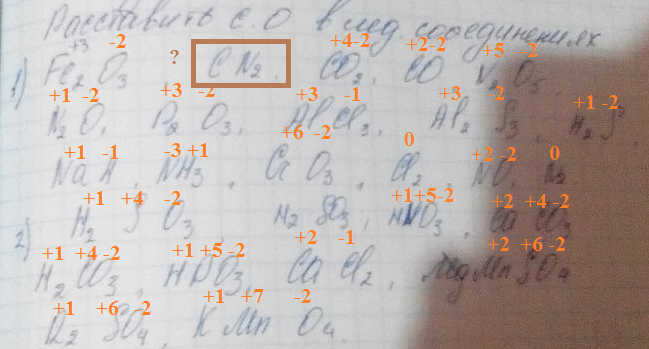 Расставить с.О в след. соединениях
+3 -2 ? +4-2 +2-2 +5 -2
1) Fe2 O3 , CN2 , CO2, CO N2 O5
+1 -2 +3 -2 +3 -1 +3 2 +1 -2
N2 O, P2 O3, Al Cl3, Al2 S3, H2 S,
+1 -1 -3 +1 +6 -2 0 +2 -2 0
Na H, NH3, Cr O3, Cl2, NO, N2
+1 +4 -2 +1+5-2 +2 +4 -2
2) H2 S O3, H2 SO3, HNO3, Ca CO3
+1 +4 -2 +1 +5 -2 +2 -1 +2 +6 -2
H2 CO3, HPO3, Ca Cl2, MnSO4
+1 +6 -2 +1 +7 -2
SO4, K Mn O4.